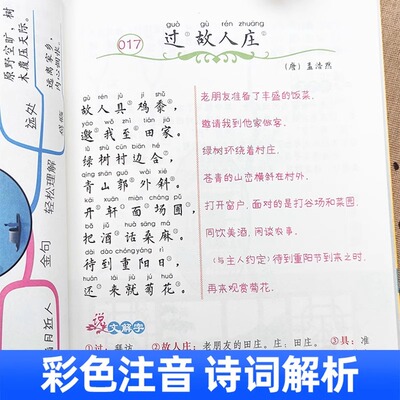 guò gù rén zhuāng
017 过①故人庄②
(唐)孟浩然
gù rén jù jī shǔ
故人具③鸡黍④,
老朋友准备了丰盛的饭菜,
yāo wǒ zhì tián jiā
邀⑤我至⑥田家。
邀请我到他家做客。
lǜ shù cūn biān hé
绿树村边合⑦,
绿树环绕着村庄,
qīng shān guō wài xié
青山郭⑧外斜⑨。
苍青的山峦横斜在村外。
kāi xuān miàn cháng pǔ
开⑩轩面场圃,
打开窗户,面对的是打谷场和菜园,
bǎ jiǔ huà sāng má
把酒话桑麻。
同饮美酒,闲谈农事。
dài dào chóng yáng rì
待到重阳日,
(与主人约定)待到重阳节到来之时,
huán lái jiù jú huā
还来就菊花。
再来观赏菊花。
说文解字
①过:拜访。
②故人庄:老朋友的田庄。庄:田庄。
③具:准
原野空旷,树
木覆压天际。
远离家乡,
内心惆怅
远处
轻松理解
金句
月近人
彩色注音 诗词解析